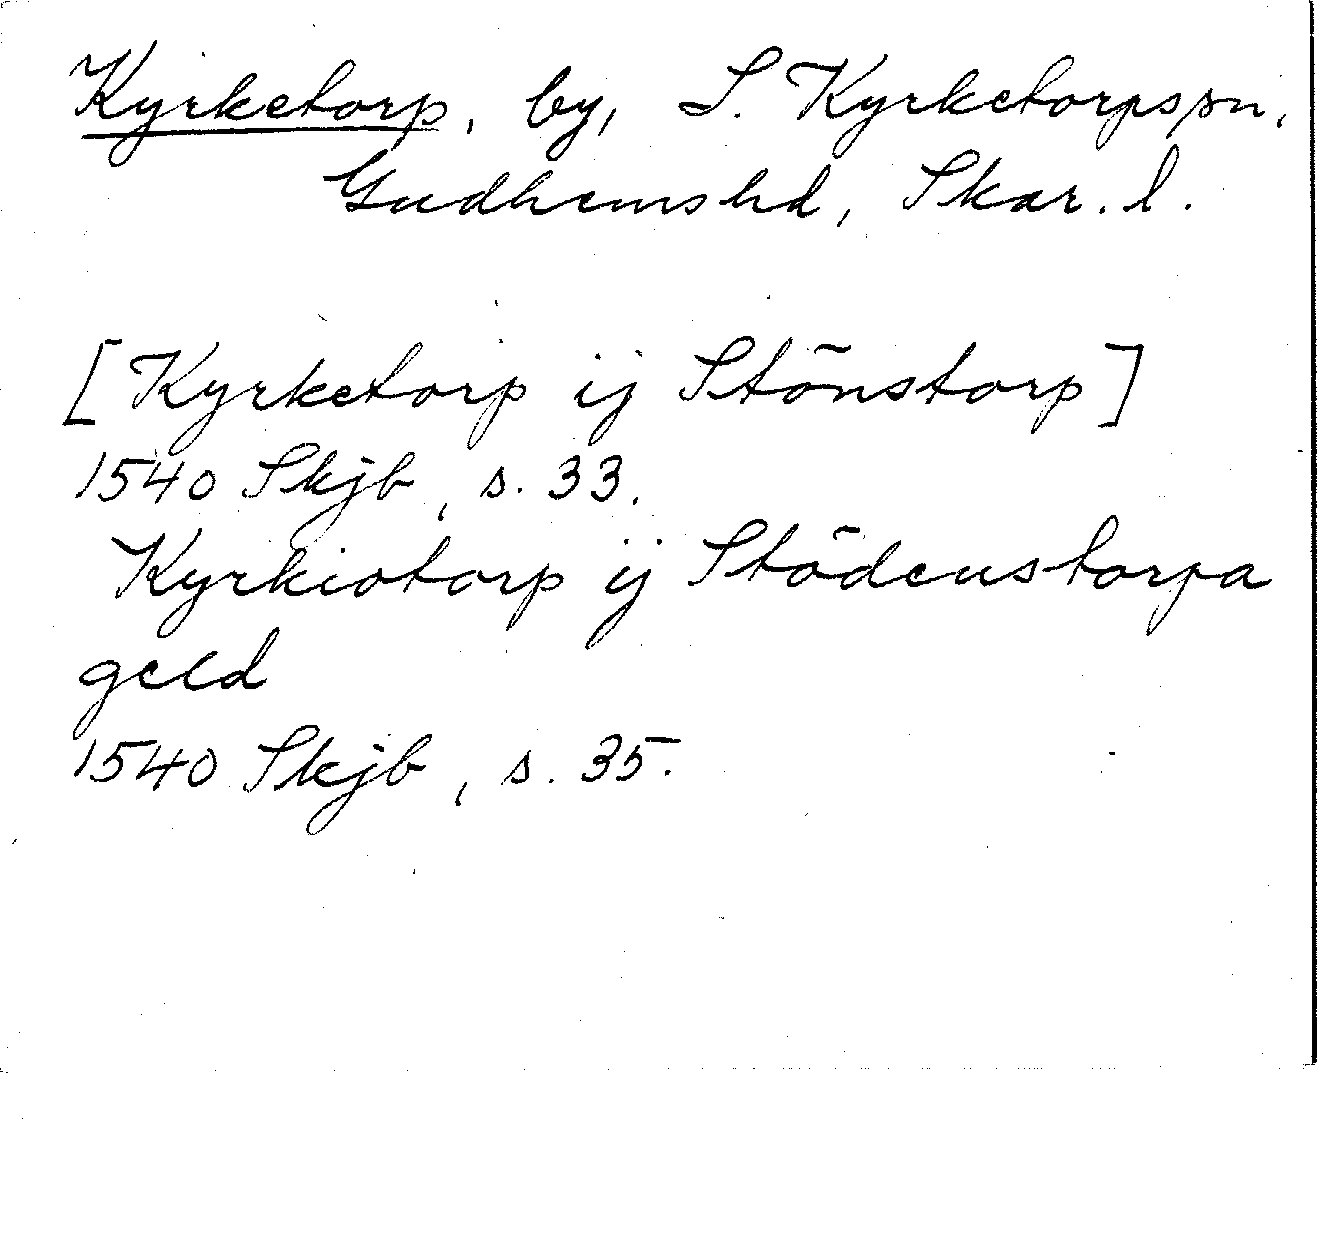 Kyrketorp, by, S. Kyrketorpspn,
Gudhemshd, Skar. l.
[Kyrketorp ij Stönstorp]
1540 Skjb, s. 33.
Kyrkiotorp ij Stödenstorpa
geld
1540 Skjb, s. 35.